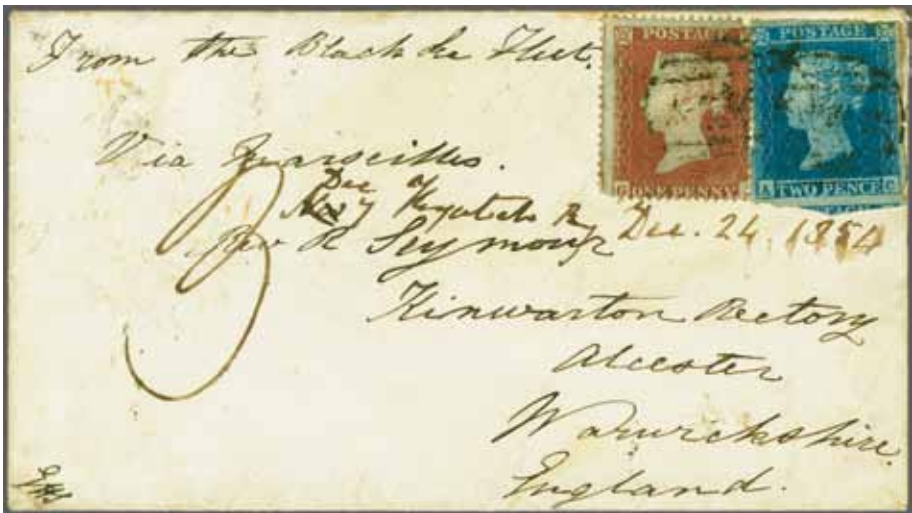 From the Black Sea Fleet.
POSTAGE
ONE PENNY
POSTAGE
A TWO PENCE C
Via Marseilles.
3
Dec
Rev R Seymour Dec. 24. 1854
Kinwarton Rectory
Alcester
Warwickshire.
England.